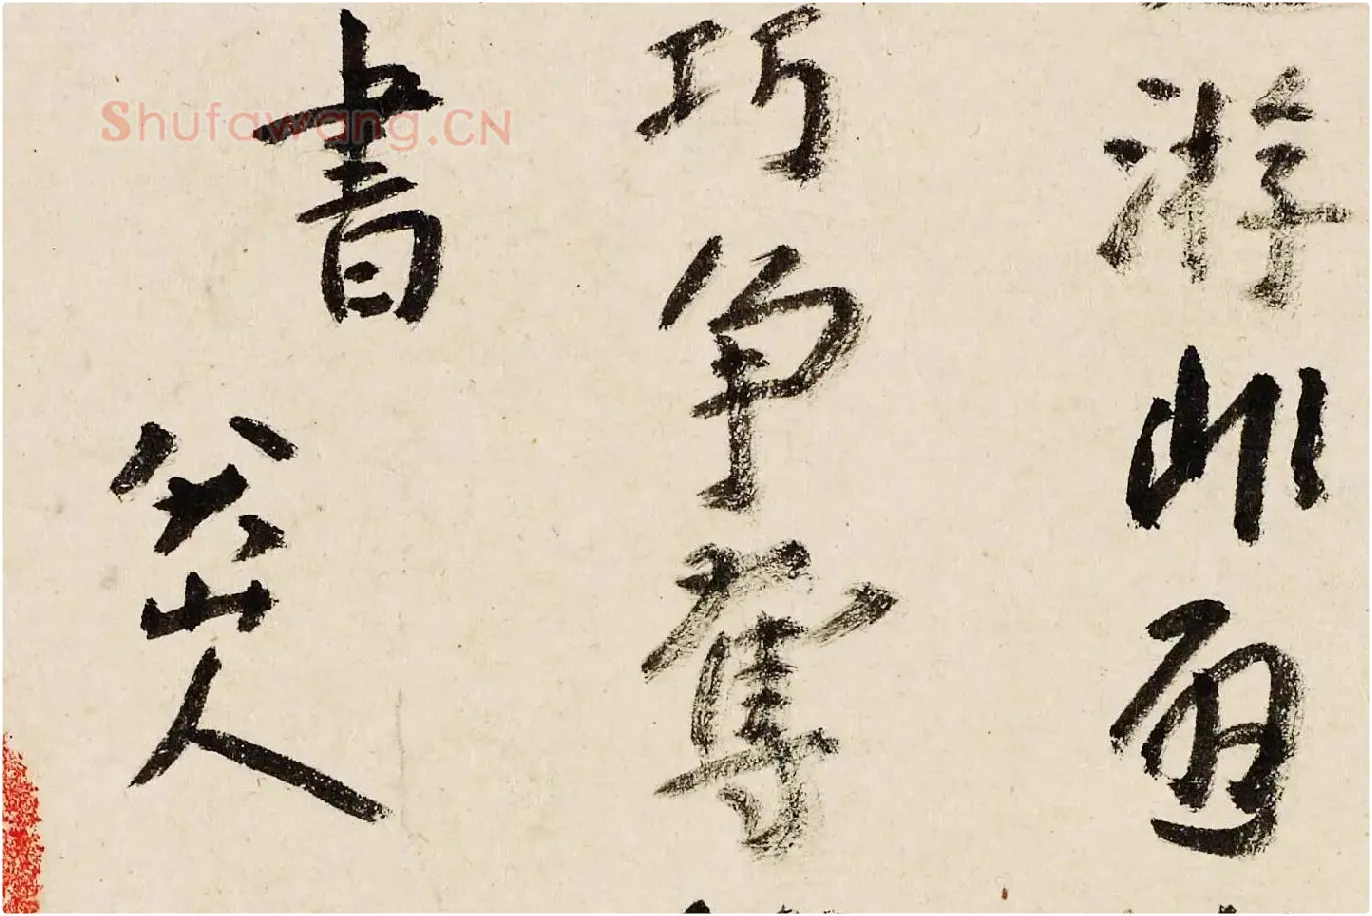 游非
巧争奪
書
八大山人
Shufawang.CN